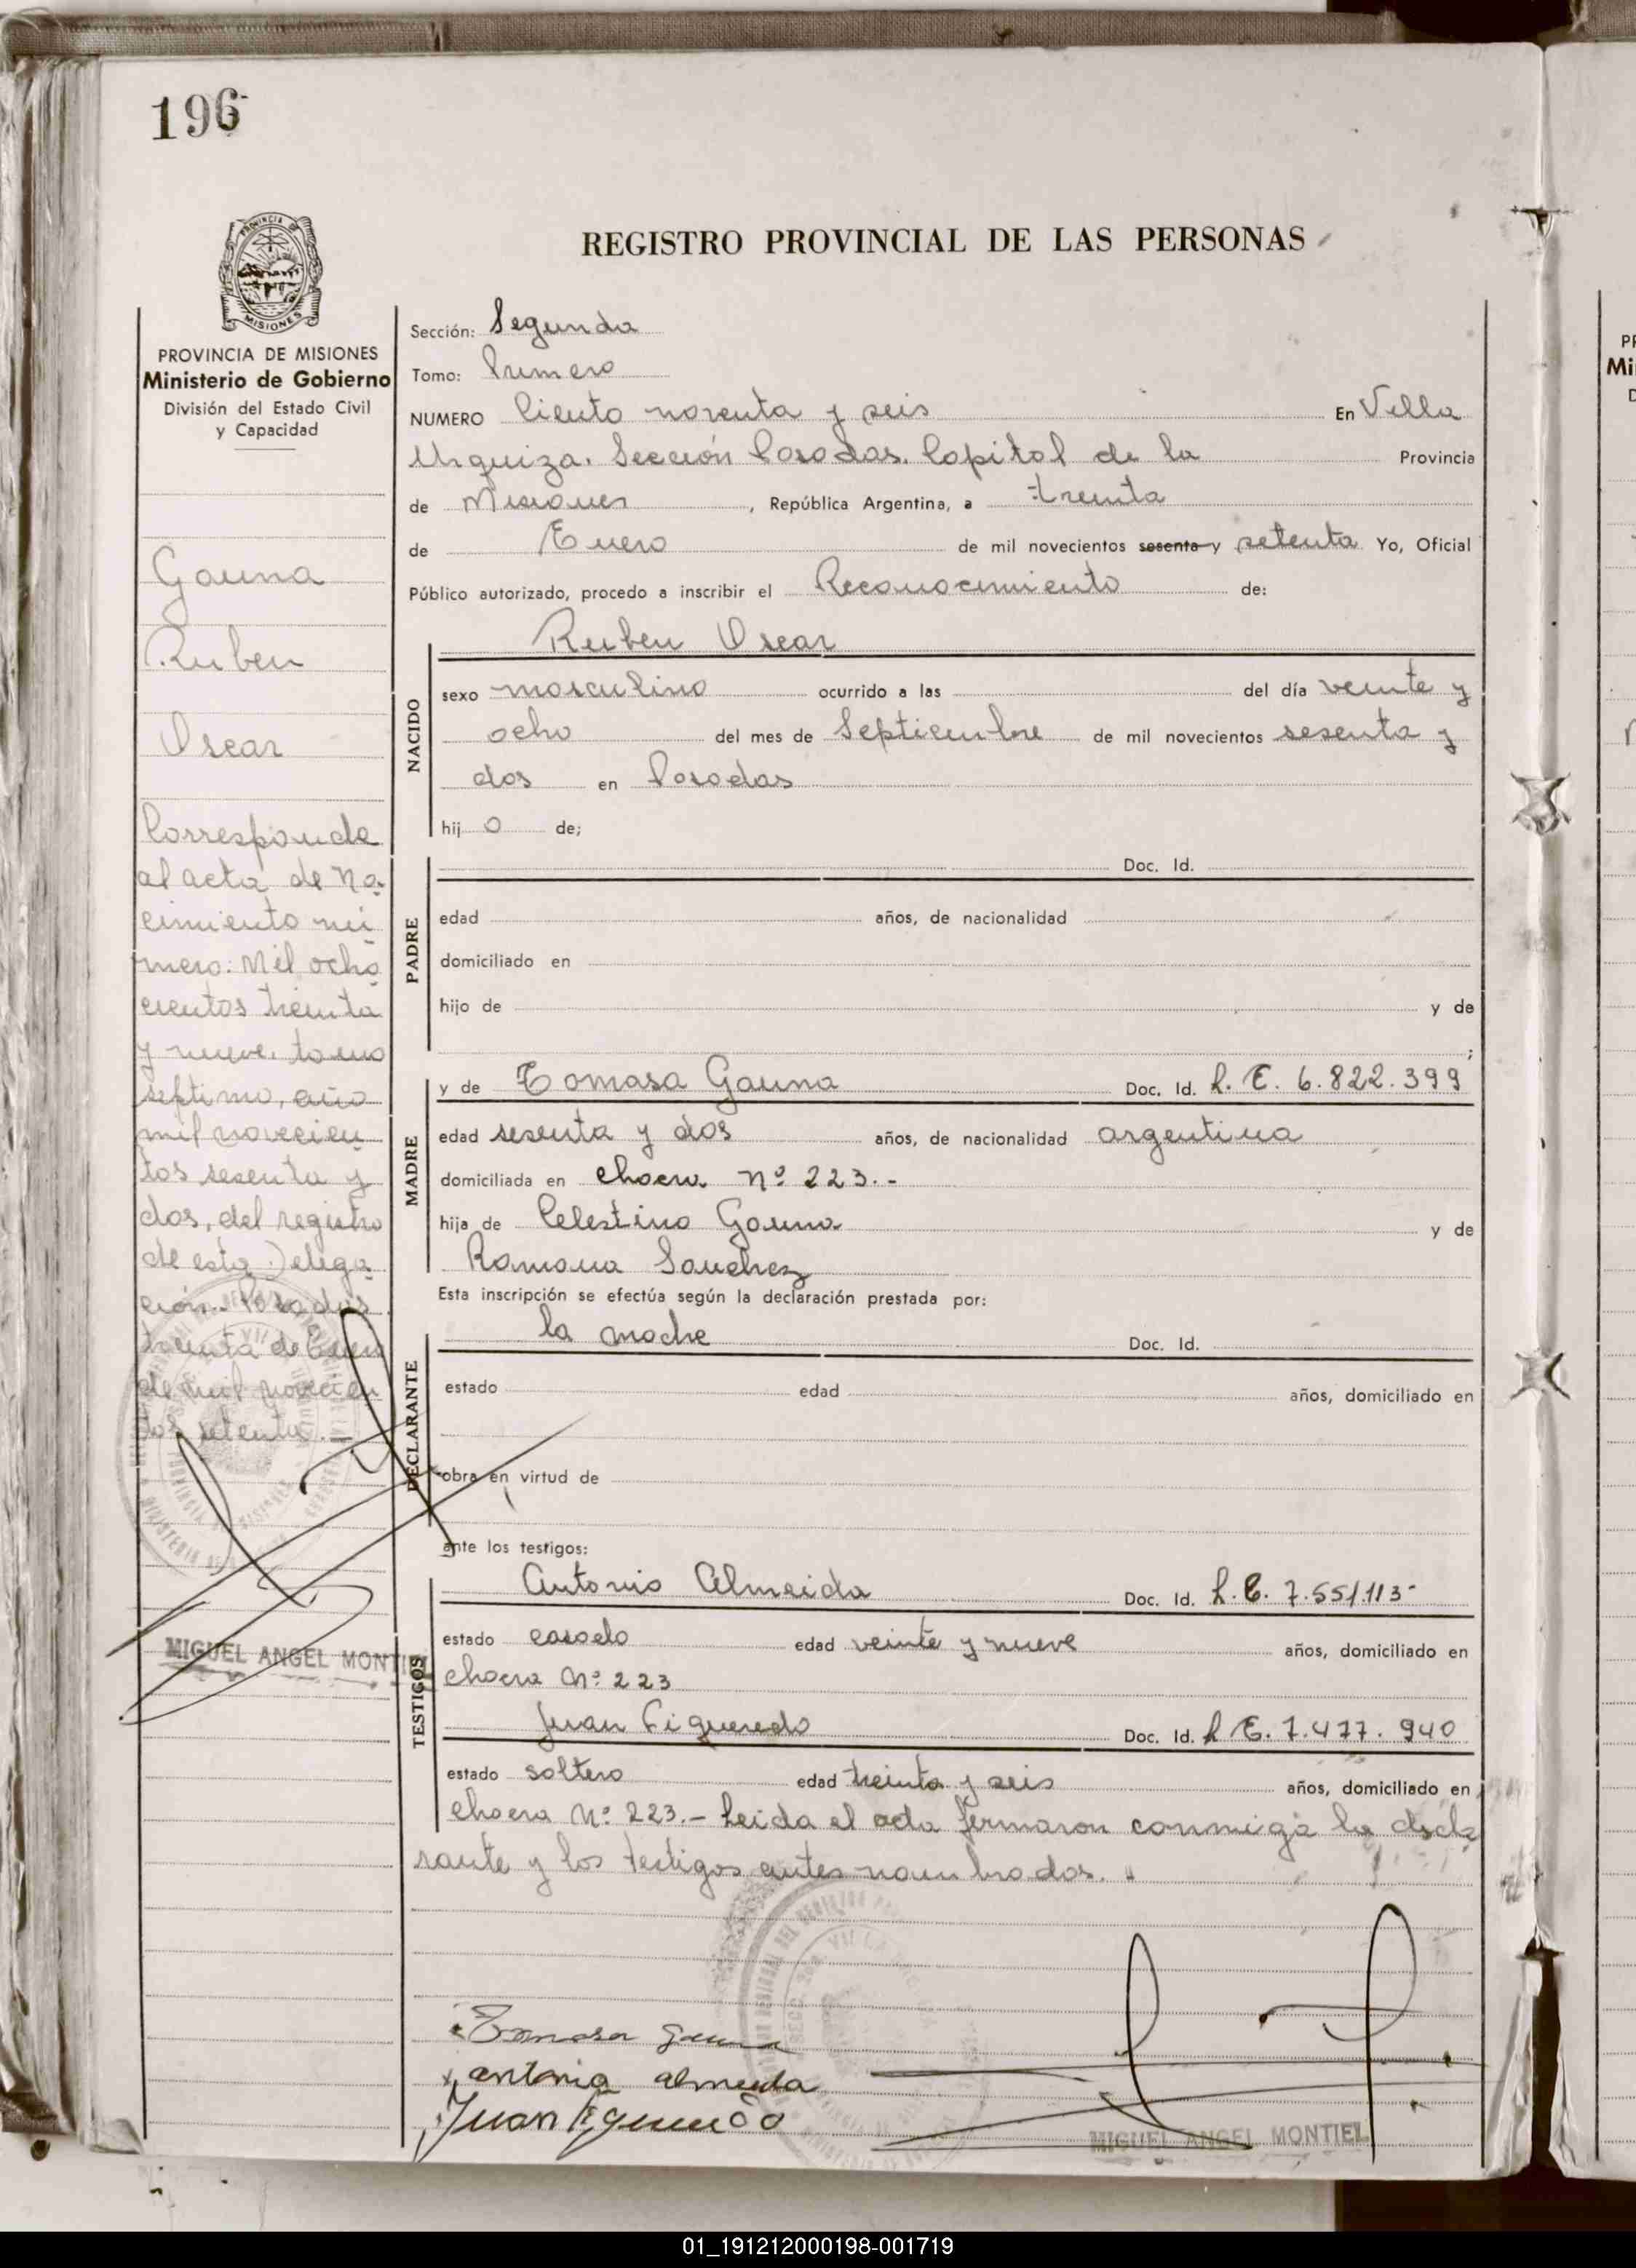 196
REGISTRO PROVINCIAL DE LAS PERSONAS
PROVINCIA DE
MISIONES
PROVINCIA DE MISIONES
Ministerio de Gobierno
División del Estado Civil
y Capacidad
Gauna
Ruben
Oscar
Corresponde
al acta de na-
cimiento nú-
mero: Mil ocho
cientos treinta
y nueve, tomo
septimo, año
mil novecien
tos sesenta y
dos, del registro
de esta Delega-
ción.- Posadas
treinta de Enero
de mil novecien
tos setenta.-
MIGUEL ANGEL MONTIEL
Sección: Segunda
Tomo: Primero
NUMERO Ciento noventa y seis En Villa
Urquiza. Sección Posadas. Capital de la Provincia
de Misiones, República Argentina, a treinta
de Enero de mil novecientos sesenta y setenta Yo, Oficial
Público autorizado, procedo a inscribir el Reconocimiento de:
NACIDO
Ruben Oscar
sexo masculino ocurrido a las del día veinte y
ocho del mes de Septiembre de mil novecientos sesenta y
dos en Posadas
hij o de;
PADRE
Doc. Id.
edad años, de nacionalidad
domiciliado en
hijo de y de
;
MADRE
y de Tomasa Gauna Doc. Id. L. E. 6.822.399
edad sesenta y dos años, de nacionalidad argentina
domiciliada en chacra Nº 223.-
hija de Celestino Gauna y de
Ramona Sanchez
Esta inscripción se efectúa según la declaración prestada por:
DECLARANTE
la madre Doc. Id.
estado edad años, domiciliado en
obra en virtud de
ante los testigos:
TESTIGOS
Antonio Almeida Doc. Id. L. E. 7.551.113-
estado casado edad veinte y nueve años, domiciliado en
chacra Nº 223
Juan Figueredo Doc. Id. L E. 7.477.940
estado soltero edad treinta y seis años, domiciliado en
chacra Nº 223.- Leida el acta firmaron conmigo la decla
rante y los testigos antes nombrados.
Tomasa Gauna
antonio almeida
Juan Figueredo
MIGUEL ANGEL MONTIEL
01_191212000198-001719